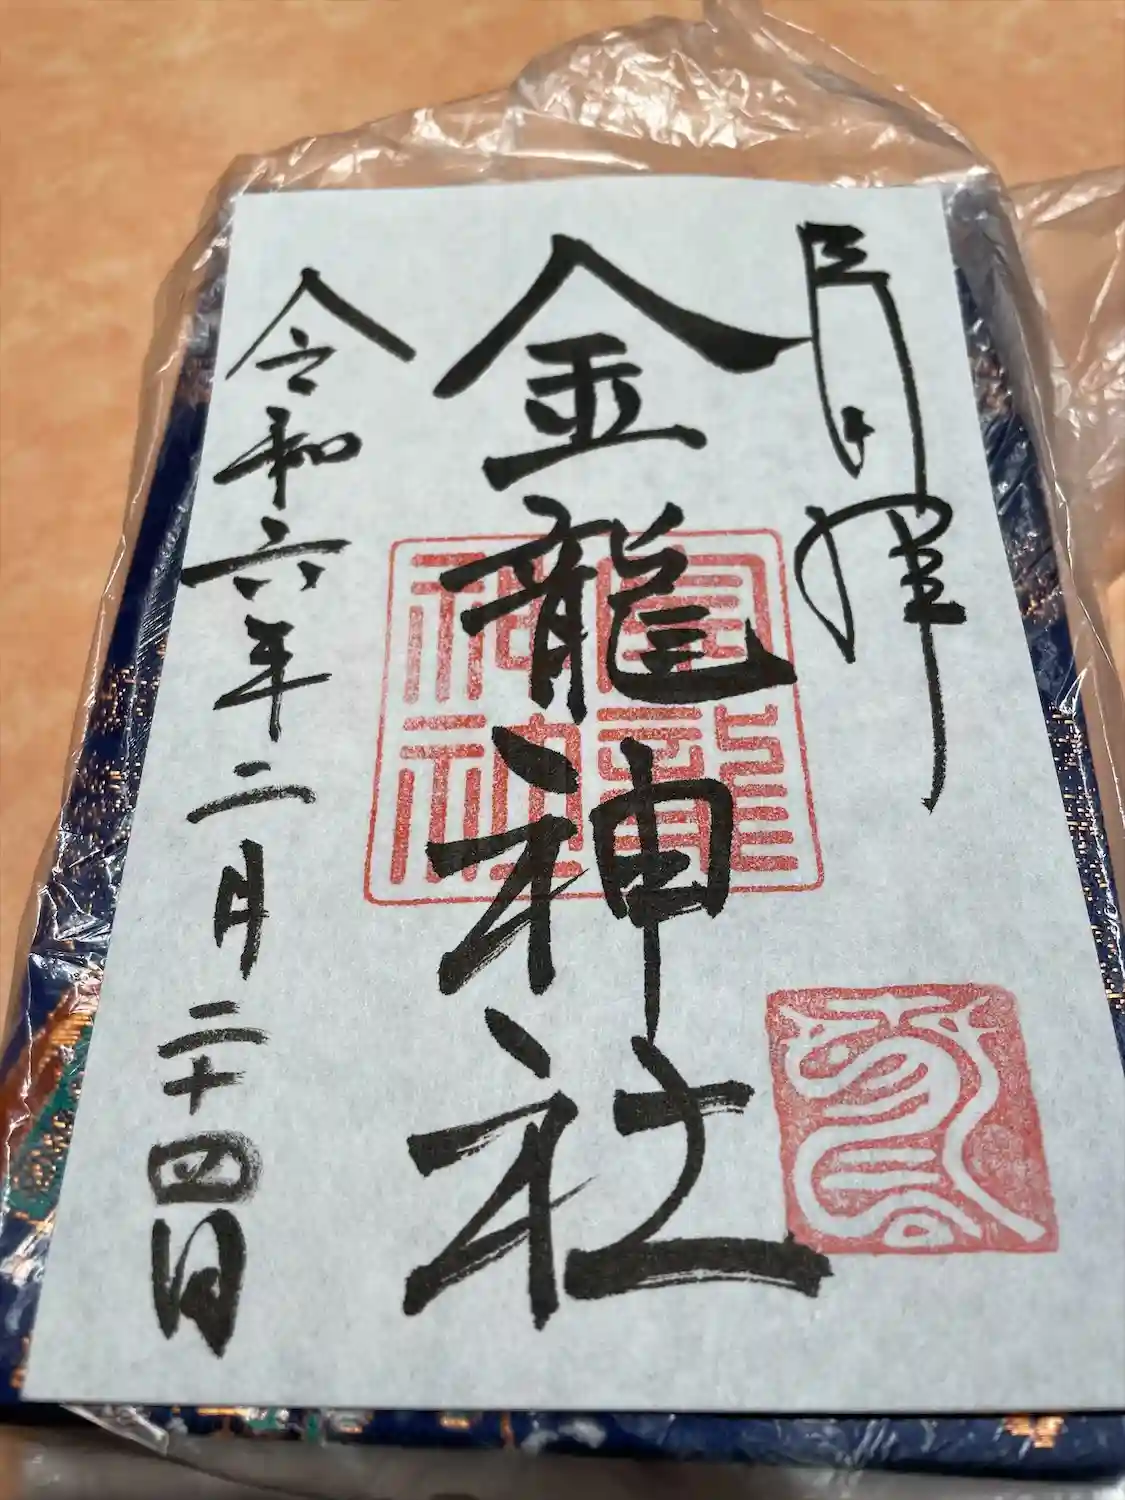 金龍神社
令和六年二月二十四日
金龍
神社